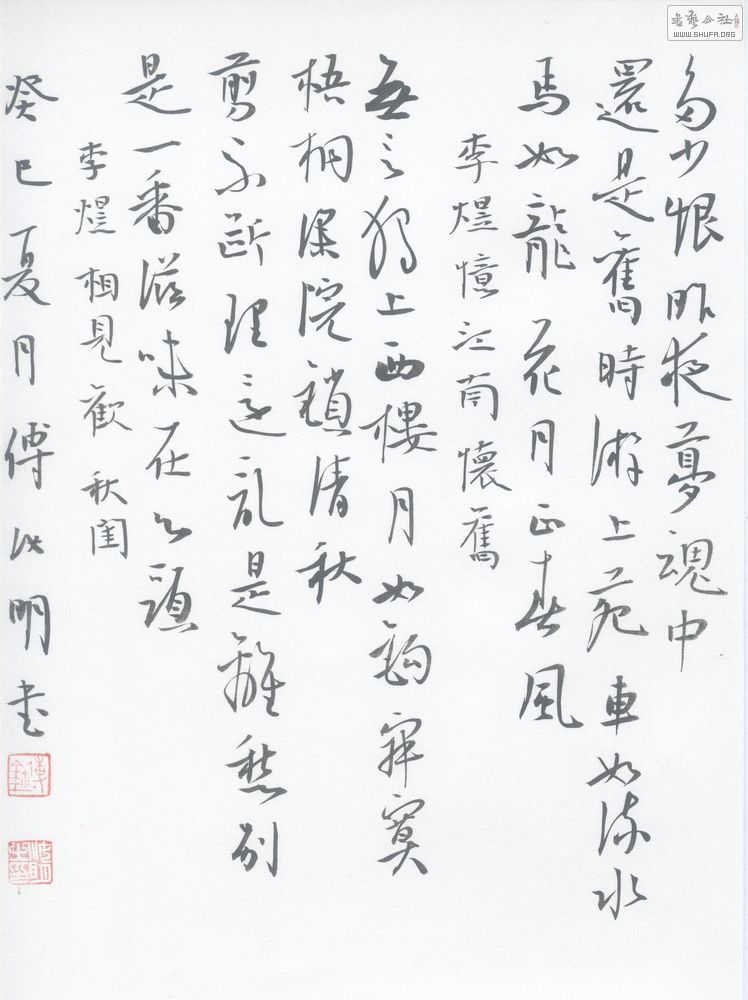 多少恨昨夜夢魂中
還是舊時游上苑車如流水
馬如龍花月正春風
李煜憶江南懷舊
無言獨上西樓月如鉤寂寞
梧桐深院鎖清秋
剪不斷理還亂是離愁別
是一番滋味在心頭
李煜相見歡 秋閨
癸巳夏月傅明書
書藝公社
WWW.SHUFA.ORG